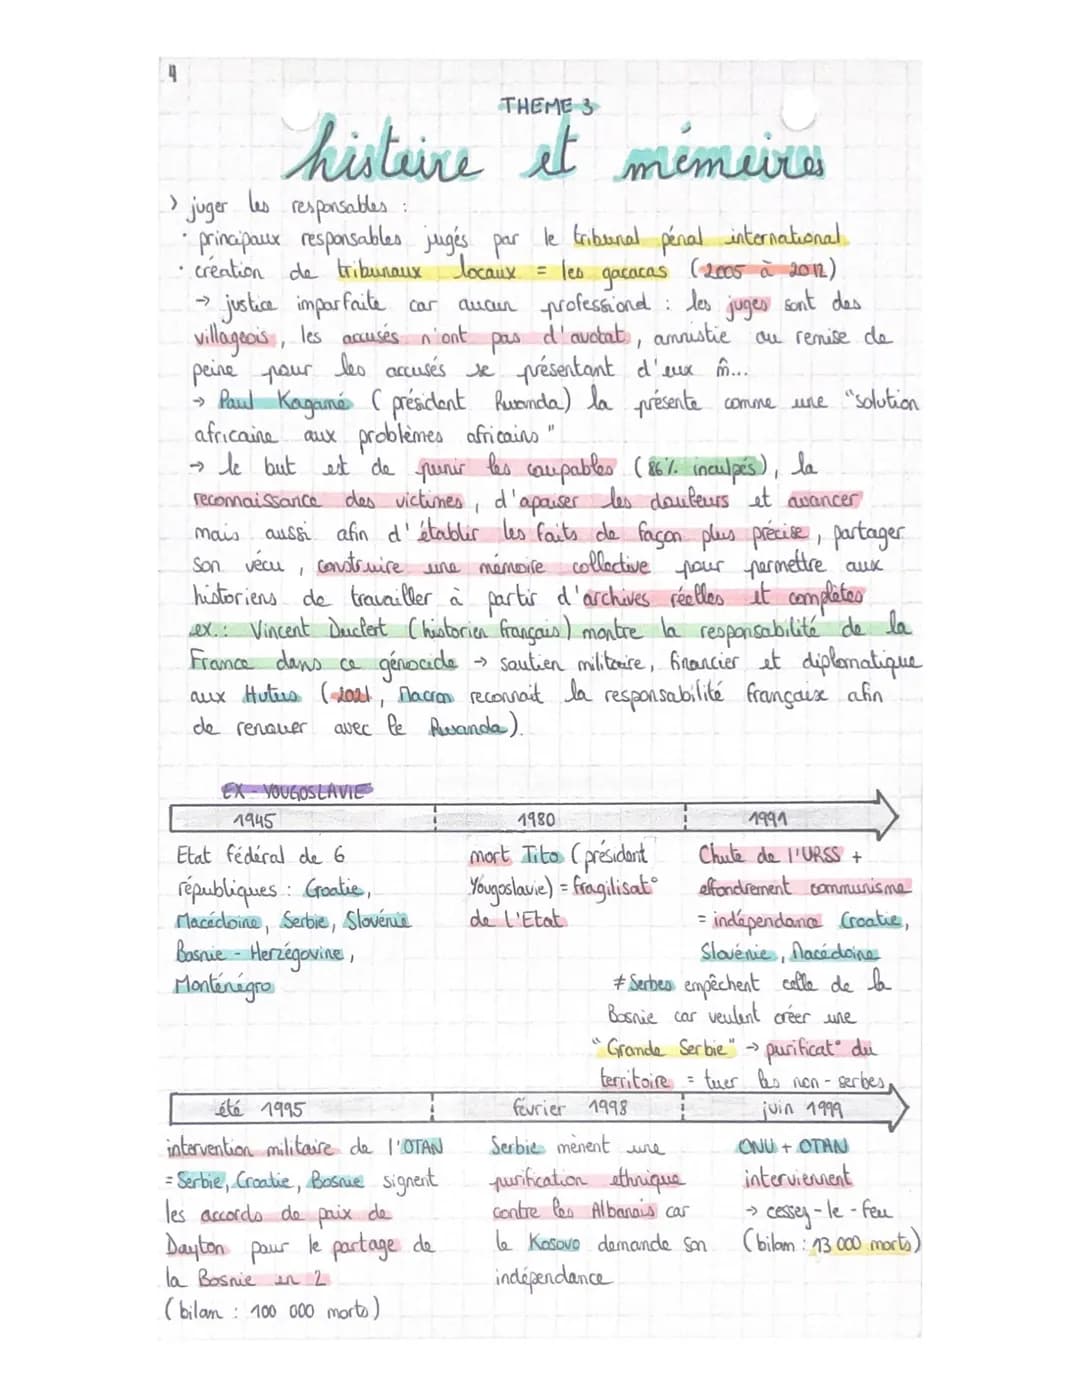 4
THEME 3
histoire et mémoires
> juger les responsables :
· principaux responsables jugés par le tribunal pénal international
· création de tribunaux locaux = les gacacas (2005 à 2012)
→ justice imparfaite car aucun professionnel : les juges sont des
villageois, les accusés n'ont pas d'avocat, amnistie ou remise de
peine pour les accusés se présentant d'eux m̂...
→ Paul Kagamé (président Rwanda) la présente comme une "solution
africaine aux problèmes africains"
→ le but est de punir les coupables (86% inculpés), la
reconnaissance des victimes, d'apaiser les douleurs et avancer
mais aussi afin d'établir les faits de façon plus précise, partager
son vécu, construire une mémoire collective pour permettre aux
historiens de travailler à partir d'archives réelles et complètes
ex.: Vincent Duclert (historien français) montre la responsabilité de la
France dans ce génocide → soutien militaire, financier et diplomatique
aux Hutus (2021, Macron reconnait la responsabilité française afin
de renouer avec le Rwanda).
EX - YOUGOSLAVIE
1945 1980 1991
Etat fédéral de 6
républiques : Croatie,
Macédoine, Serbie, Slovénie
Bosnie - Herzégovine,
Monténégro
mort Tito (président
Yougoslavie) = fragilisat°
de l'Etat
Chute de l'URSS +
effondrement communisme
= indépendance Croatie,
Slovénie, Macédoine
≠ Serbes empêchent celle de la
Bosnie car veulent créer une
"Grande Serbie" → purificat° du
territoire = tuer les non-serbes
été 1995 février 1998 juin 1999
intervention militaire de l'OTAN
= Serbie, Croatie, Bosnie signent
les accords de paix de
Dayton pour le partage de
la Bosnie en 2
(bilan : 100 000 morts)
Serbie mènent une
purification ethnique
contre les Albanais car
le Kosovo demande son
indépendance
ONU + OTAN
interviennent
→ cessez-le-feu
(bilan : 13 000 morts)